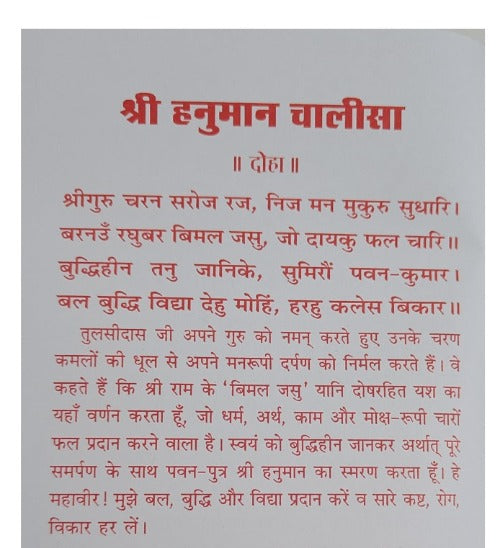 श्री हनुमान चालीसा
॥ दोहा ॥
श्रीगुरु चरन सरोज रज, निज मन मुकुरु सुधारि।
बरनउँ रघुबर बिमल जसु, जो दायकु फल चारि॥
बुद्धिहीन तनु जानिके, सुमिरौं पवन-कुमार।
बल बुद्धि विद्या देहु मोहिं, हरहु कलेस बिकार॥
तुलसीदास जी अपने गुरु को नमन् करते हुए उनके चरण
कमलों की धूल से अपने मनरूपी दर्पण को निर्मल करते हैं। वे
कहते हैं कि श्री राम के ‘बिमल जसु’ यानि दोषरहित यश का
यहाँ वर्णन करता हूँ, जो धर्म, अर्थ, काम और मोक्ष-रूपी चारों
फल प्रदान करने वाला है। स्वयं को बुद्धिहीन जानकर अर्थात् पूरे
समर्पण के साथ पवन-पुत्र श्री हनुमान का स्मरण करता हूँ। हे
महावीर! मुझे बल, बुद्धि और विद्या प्रदान करें व सारे कष्ट, रोग,
विकार हर लें।